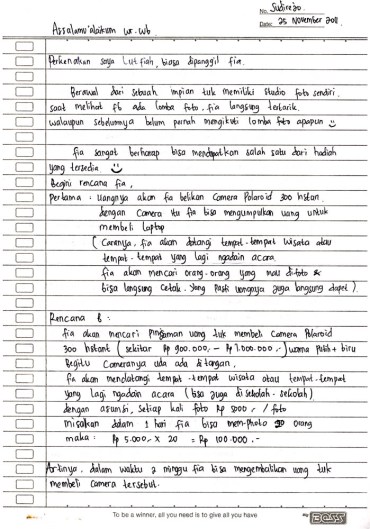 No. Sudirejo.
Date: 25 November 2011.
Assalamu'alaikum wr. wb
Perkenalkan saya Lutfiah, biasa dipanggil fia.
Berawal dari sebuah impian tuk memiliki studio foto sendiri.
saat melihat fb ada lomba foto, fia langsung tertarik.
walaupun sebelumnya belum pernah mengikuti lomba foto apapun
fia sangat berharap bisa mendapatkan salah satu dari hadiah
yang tersedia.
Begini rencana fia,
pertama : Uangnya akan fia belikan Camera Polaroid 300 Instan.
dengan Camera itu fia bisa mengumpulkan uang untuk
membeli laptop
(Caranya, fia akan datangi tempat-tempat wisata atau
tempat-tempat yang lagi ngadain acara.
fia akan mencari orang-orang yang mau difoto &
bisa langsung cetak. Yang pasti uangnya juga langsung dapet).
Rencana B :
fia akan mencari pinjaman uang tuk membeli Camera Polaroid
300 Instant (sekitar Rp 900.000,- Rp 1.000.000,-) warna Putih + biru
Begitu Cameranya uda ada ditangan,
fia akan mendatangi tempat-tempat wisata atau tempat-tempat
yang lagi ngadain acara (bisa juga di sekolah-sekolah)
dengan asumsi, setiap kali foto Rp 5000,- /foto
misalkan dalam 1 hari fia bisa mem-photo 20 orang
maka : Rp 5.000,- X 20 = Rp 100.000,-
Artinya, dalam waktu 2 minggu fia bisa mengembalikan uang tuk
membeli camera tersebut.
To be a winner, all you need is to give all you have
BOSS